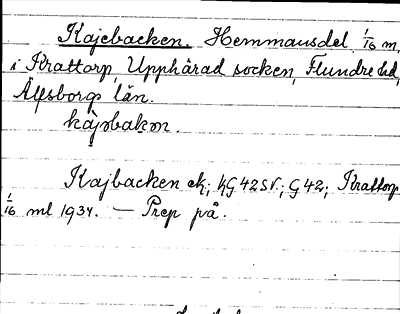 Kajebacken. Hemmansdel 1/16 m,
i Krattorp, Upphärad socken, Flundre hd,
Älfsborgs län.
kàjəbakən.
Kajbacken ek; hG 42 SV; G 42; Krattorp
1/16 ml 1934. — Prep på.